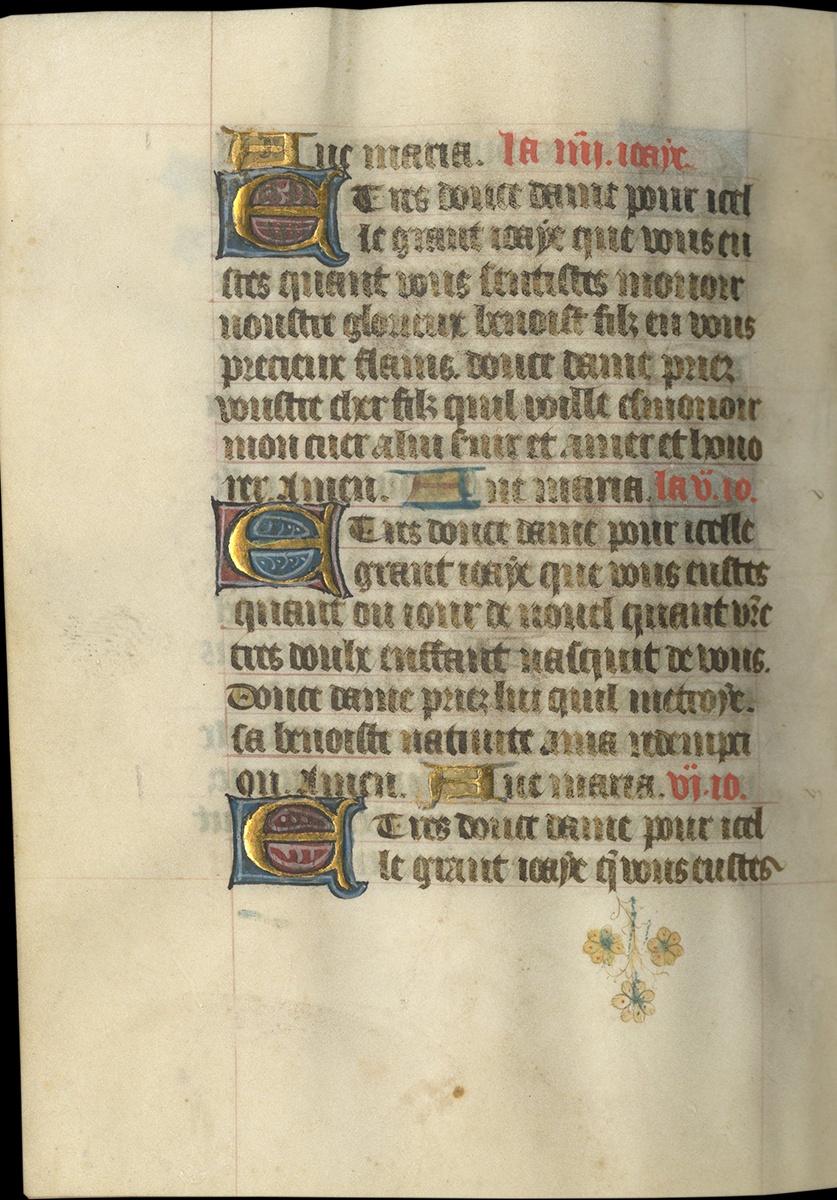 Aue maria. la iiii. ioaye.
E Tres doulce dame pour icel
le grant ioaye que vous eu
stes quant vous sentistes mouoir
noustre glorieux benoist filz en vous
precieux flans. doulce dame priez
voustre cher filz quil voille esmouoir
mon cuer a lui seruir et amer et hono
rer. Amen. Aue maria. la v. io.
E Tres doulce dame pour icelle
grant ioaye que vous eustes
quant ou iour de nouel quant vr̃e
tres doulx enffant nasquit de vous.
Doulce dame priez lui quil mectroye.
sa benoiste natiuite a ma redempci
on. Amen. Aue maria. vi. io.
E Tres doulce dame pour icel
le grant ioaye q̃ vous eustes